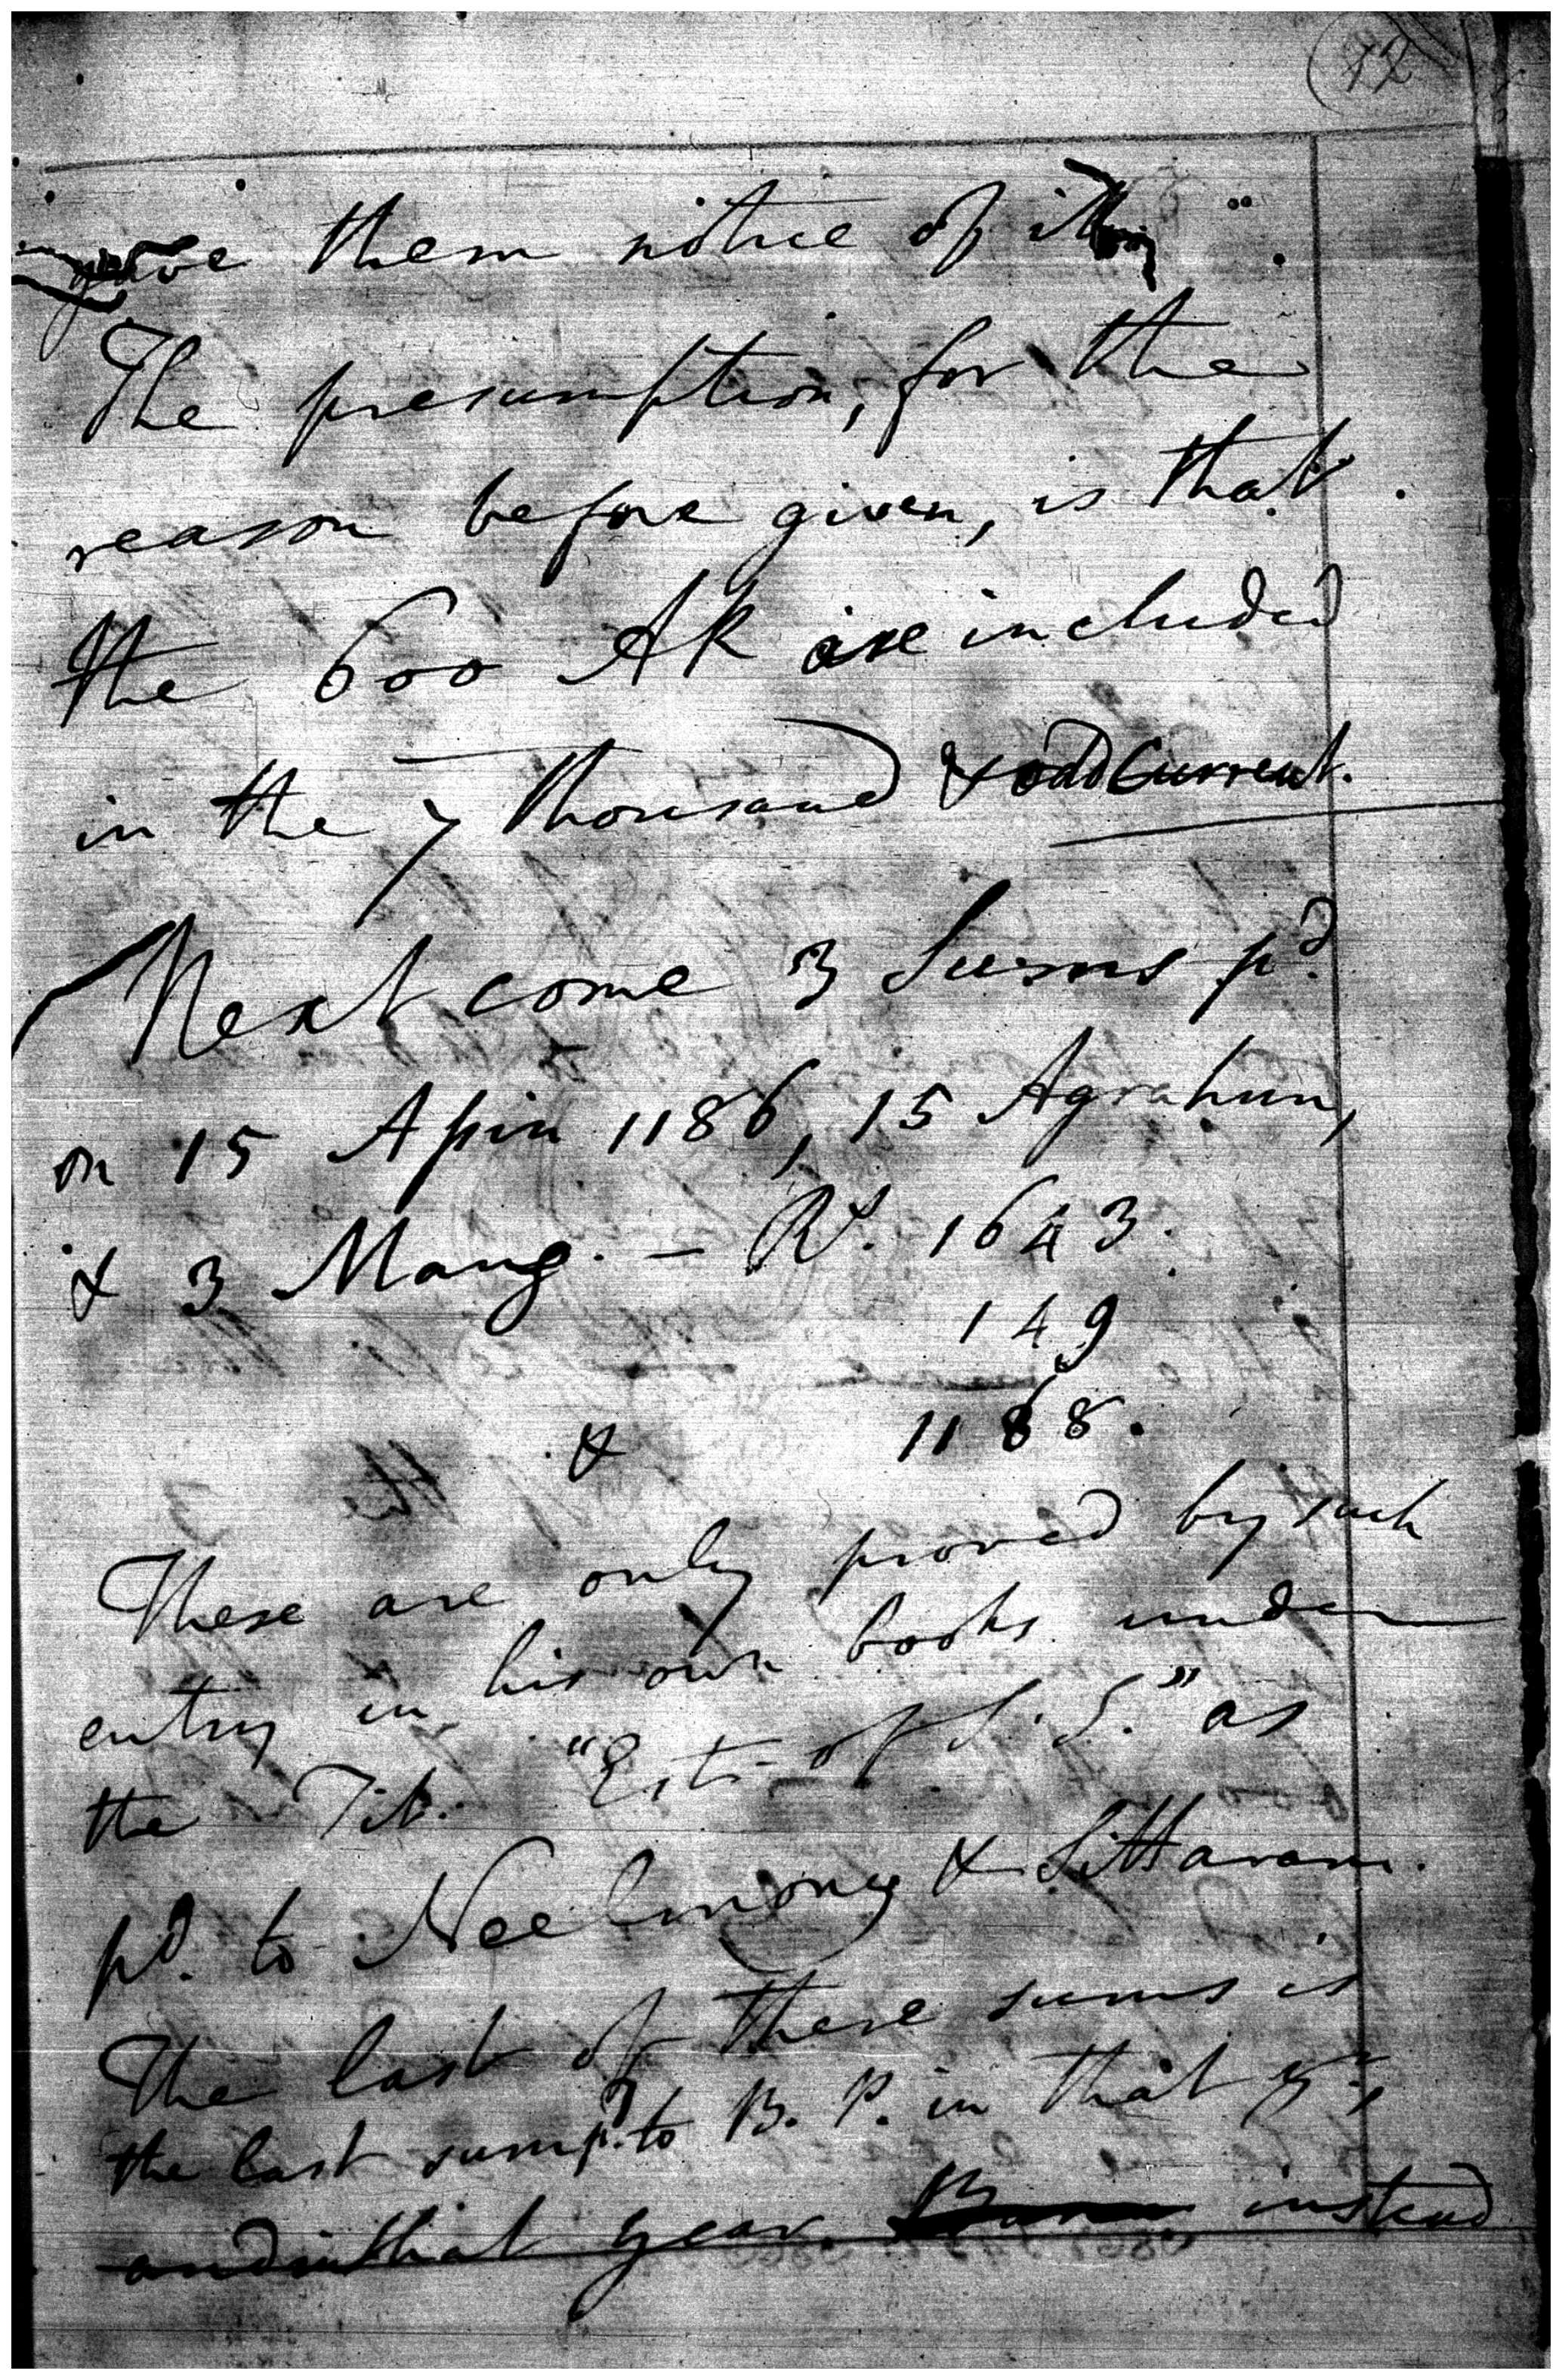 72
give them notice of it
The presumption, for the
reason before given, is that
the 600 AR are included
in the 7 thousand & odd Current.
Next come 3 Sums pd.
on 15 Assin 1186, 15 Agrahun,
& 3 Maug. — Rs. 1643.
149
& 1168.
These are only proved by such
entry in his own books under
the Tit. "Est. of S. S." as
pd. to Neelmony & Sittaram.
The last of these sums is
the last sum pd. to B. P. in that yr.,
and in that year. instead